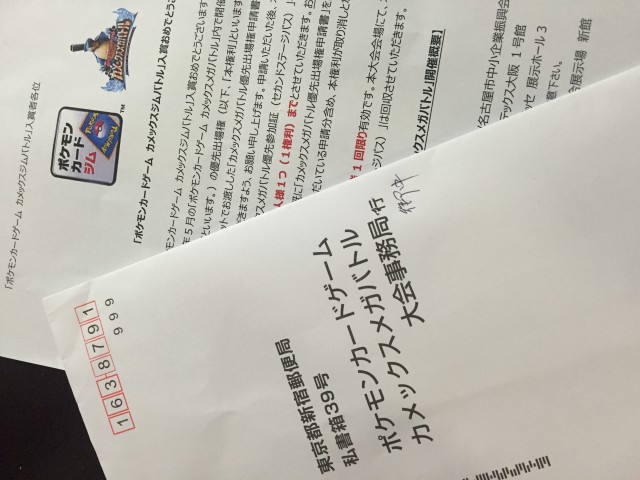 「ポケモンカードゲーム カメックスジムバトル」入賞者各位
カメックスメガバトル
ポケモン
カード
ジム
™
「ポケモンカードゲーム カメックスジムバトル」入賞おめでとう
モンカードゲーム カメックスジムバトル」入賞おめでとうございます
年5月の「ポケモンカードゲーム カメックスメガバトル」内で開催
といいます。)の優先出場権(以下、「本権利」といいます
ットでお渡しした「カメックスメガバトル優先出場権申請書
きますよう、お願い申し上げます。申請いただいた後、
クスメガバトル優先参加証(セカンドステージパス)」
人様1つ(1権利)までとさせていただきます。お
に「カメックスメガバトル優先出場権申請書」を
だいている申請分含め、本権利が取り消しと
1回限り有効です。本大会会場にて、
ジパス)」は回収させていただきます。
ックスメガバトル【開催概要】
名古屋市中小企業振興会
テックス大阪 1号館
ッセ 展示ホール3
意下さい。
展示場 新館
1638791
999
東京都新宿郵便局
私書箱39号
ポケモンカードゲーム
カメックスメガバトル
大会事務局行
御中